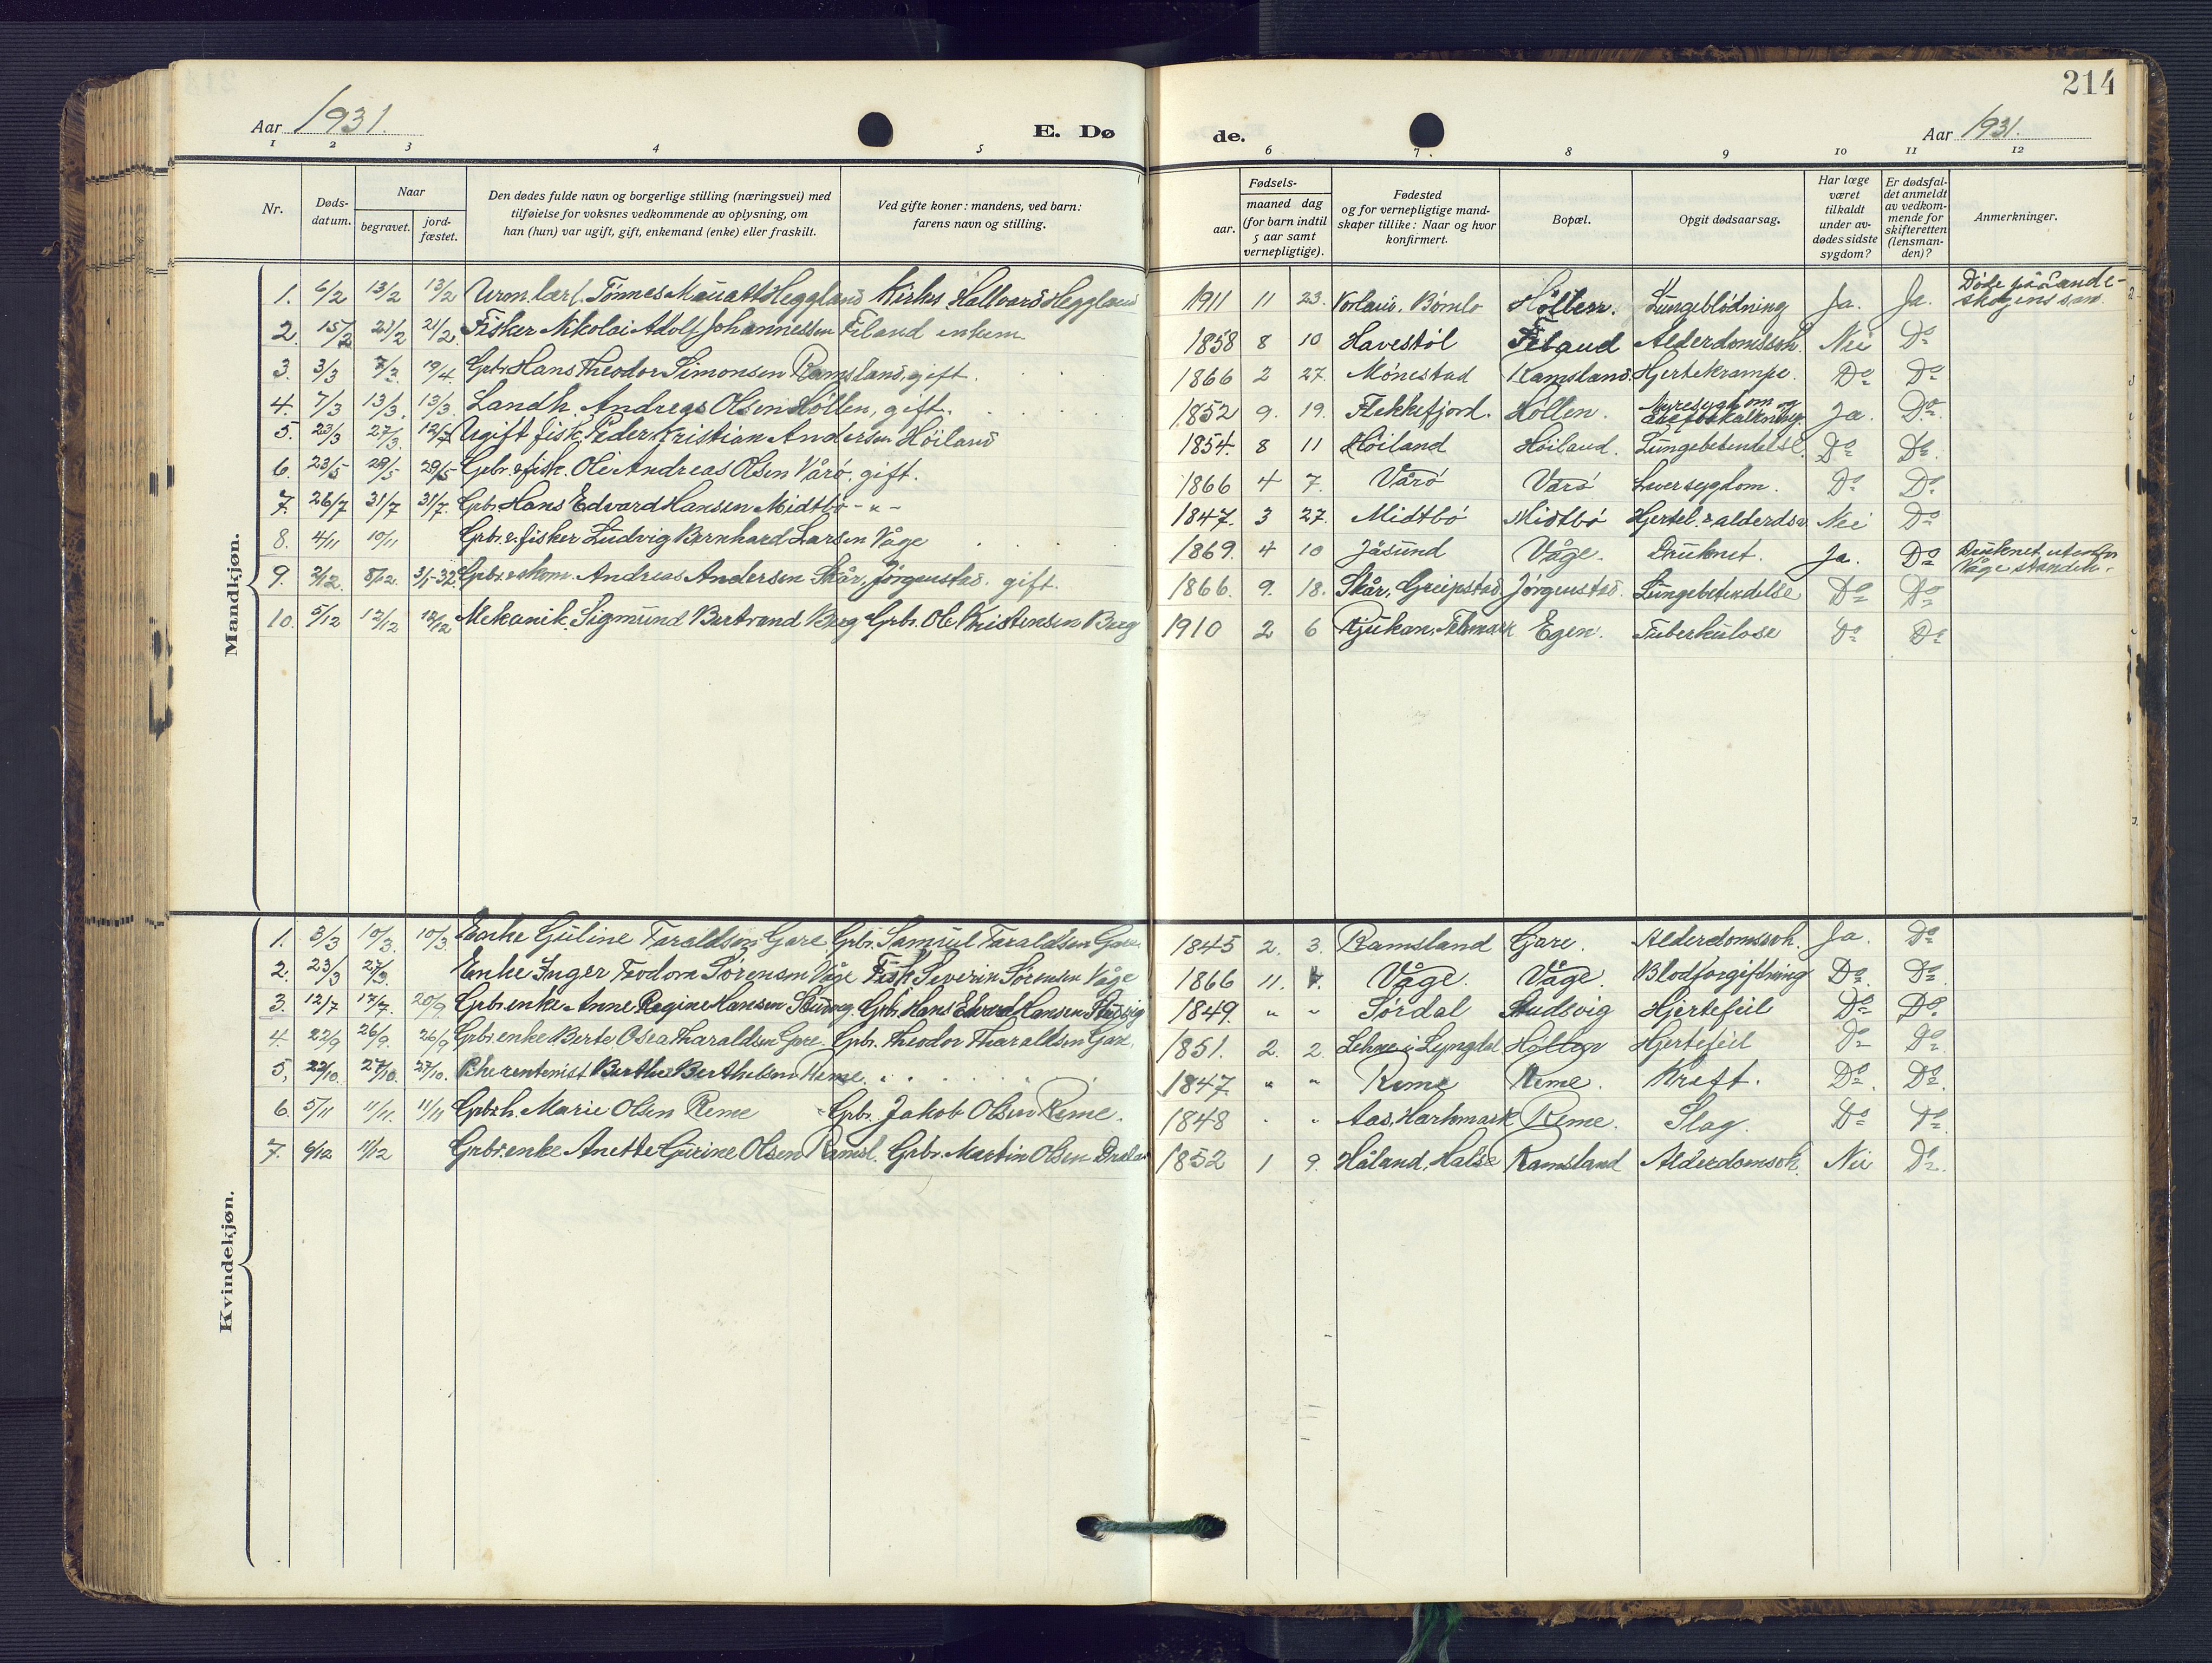 214
Aar 1931. E. Dø de. Aar 1931.
1 2 3 4 5 6 7. 8 9 10 11 12
Nr. Døds-datum. Naar begravet. jord-fæstet. Den dødes fulde navn og borgerlige stilling (næringsvei) med tilføielse for voksnes vedkommende av oplysning, om han (hun) var ugift, gift, enkemand (enke) eller fraskilt. Ved gifte koner: mandens, ved barn: farens navn og stilling. Fødsels- aar. maaned dag (for barn indtil 5 aar samt vernepligtige). Fødested og for vernepligtige mand-skaper tillike: Naar og hvor konfirmert. Bopæl. Opgit dødsaarsag. Har læge været tilkaldt under av-dødes sidste sygdom? Er dødsfal-det anmeldt av vedkom-mende for skifteretten (lensman-den)? Anmerkninger.
Mandkjøn.
1. 6/2 13/2 13/2 Tønnes Heggland Kirkes. Hallvard Heggland 1911 11 23. Bømlo Høllen. Lungeblødning Ja. Ja. Døde på Lande-skogens san.
2. 15/2 21/2 21/2 Fisker Nikolai Adolf Johannessen Filand enkem. 1858 8 10 Havestøl Filand Alderdomssvh. Nei Do
3. 3/3 19/4. Grbr. Hans Theodor Simonsen Ramsland, gift. 1866 2 27. Mønestad Ramsland. Hjertekrampe. Do Do
4. 7/3 13/3. 13/3. Landh. Andreas Olsen Høllen, gift. 1852 9. 19. Flekkefjord. Høllen. Nyresygdom og Ja. Do
5. 23/3 27/3. 12/7 Ugift fisk. Peder Kristian Andersen Høiland 1854. 8 11 Høiland Høiland. Lungebetendelse. Do Do.
6. 23/5 29/5 29/5 Grbr. & fisk. Ole Andreas Olsen Vårø. gift. 1866 4 7. Vårø Vårø Leversygdom. Do Do.
7. 26/7 31/7 31/7. Grbr. Hans Edvard Hansen Midtbø - " - 1847. 3 27. Midtbø Midtbø Hjertel. & alderdsv. Nei Do
8. 4/11 10/11 Grbr. & fisker Ludvig Bernhard Larsen Våge 1869. 4 10 Jåsund Våge. Druknet. Ja. Do Druknet utenfor Våge
9. 2/12. 8/12. 3/1-32. Grbr. & skom. Andreas Andersen Skår, Jørgenstad. gift. 1866. 9. 18. Skår, Greipstad Jørgenstad. Lungebetendelse Do Do
10. 5/12 12/12 12/12 Mekanik. Sigmund Bertrand Berg Grbr. Ole Kristensen Berg 1910 2 6 Rjukan, Telemark Egen. Tuberkulose Do Do
Kvindekjøn.
1. 3/3 10/3. 10/3. Enke Guline Taraldsen Gare. Grbr. Samuel Taraldsen Gare. 1845 2. 3. Ramsland Gare. Alderdomssvh. Ja. Do
2. 23/3 27/3. Enke Inger Teodora Sørensen Våge Fisk. Severin Sørensen Våge 1866 11. Våge. Våge. Blodforgiftning Do. Do.
3. 12/7 17/7. 20/9 Grbr. enke Anne Regine Hansen Studsvig. Grbr. Hans Edvard Hansen Studsvig 1849. " " Sørdal Studsvig Hjertefeil Do Do.
4. 22/9 26/9. 26/9 Grbr. enke Berte Osea Tharaldsen Gare. Grbr. Theodor Tharaldsen Gare. 1851. 2. 2. Lehne i Lyngdal Høllen Hjertefeil Do Do
5. 22/10. 27/10. 27/10. Berthe Berthelsen Reme. 1847. " " Reme Reme. Kreft. Do. Do.
6. 5/11 11/11. 11/11 Grbr. h. Marie Olsen Reme Grbr. Jakob Olsen Reme. 1848 Aas, Hartmark Reme. Slag. Do Do.
7. 6/12 11/12 Grbr. enke Anette Gurine Olsen Ramsl. Grbr. Martin Olsen 1852 1 9. Håland, Halse Ramsland Alderdomssvh. Nei Do.